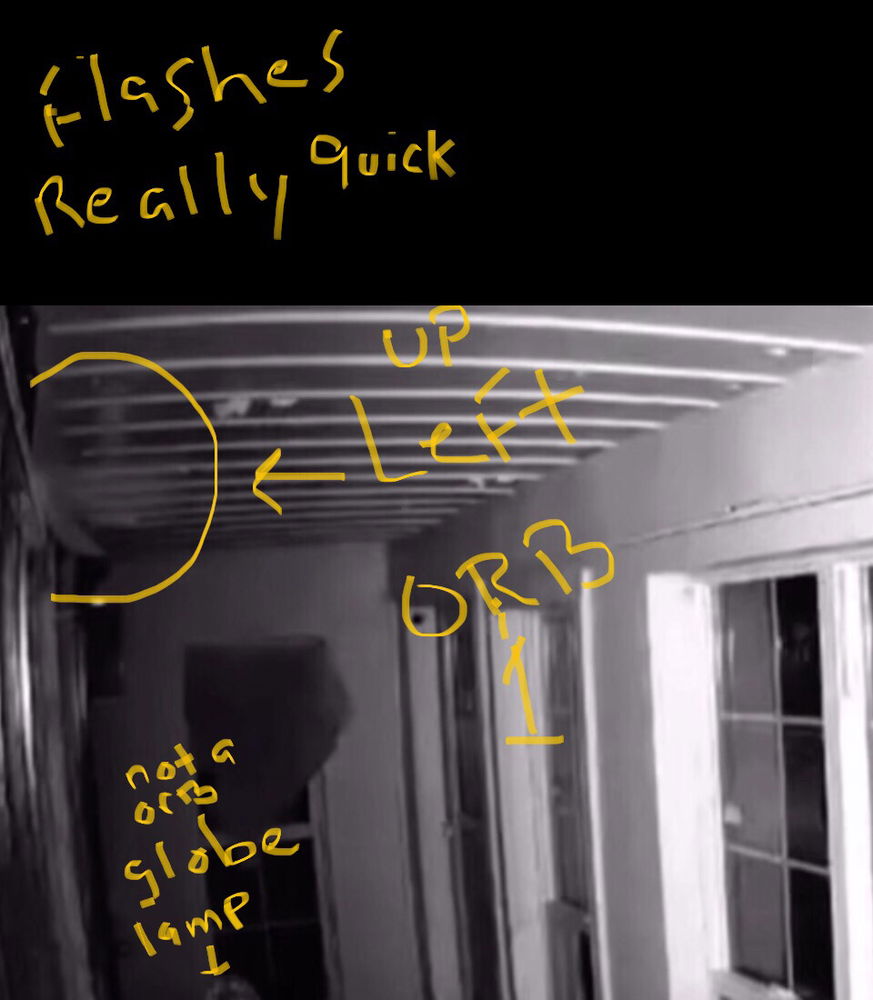 Flashes
Really quick
UP
Left
ORB
1
not a
orB
globe
lamp